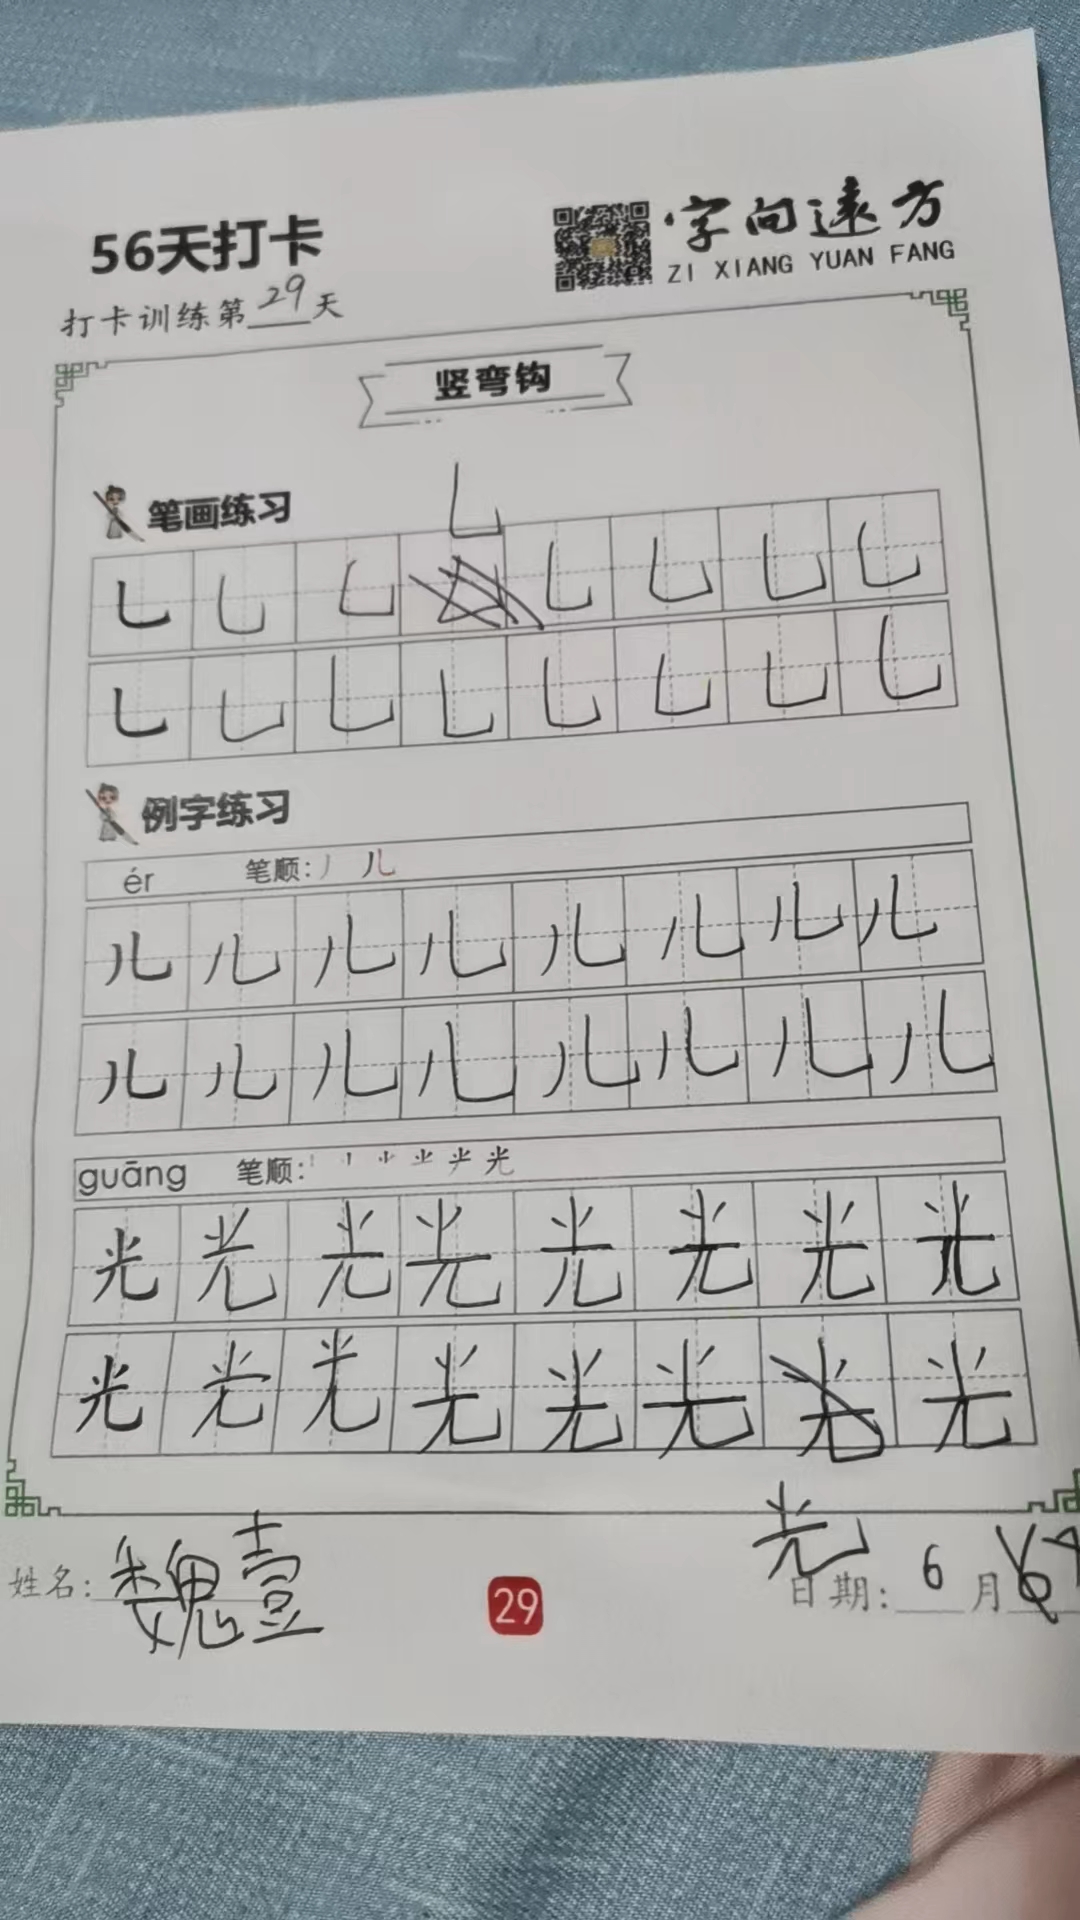 56天打卡
字向远方
ZI XIANG YUAN FANG
打卡训练第29天
竖弯钩
笔画练习
乚 乚 乚 乚 乚 乚 乚 乚
乚 乚 乚 乚 乚 乚 乚 乚
例字练习
ér 笔顺: 丿 儿
儿 儿 儿 儿 儿 儿 儿 儿
儿 儿 儿 儿 儿 儿 儿 儿
guāng 笔顺: 光
光 光 光 光 光 光 光 光
光 光 光 光 光 光 光
光
姓名: 魏壹
29
日期: 6月